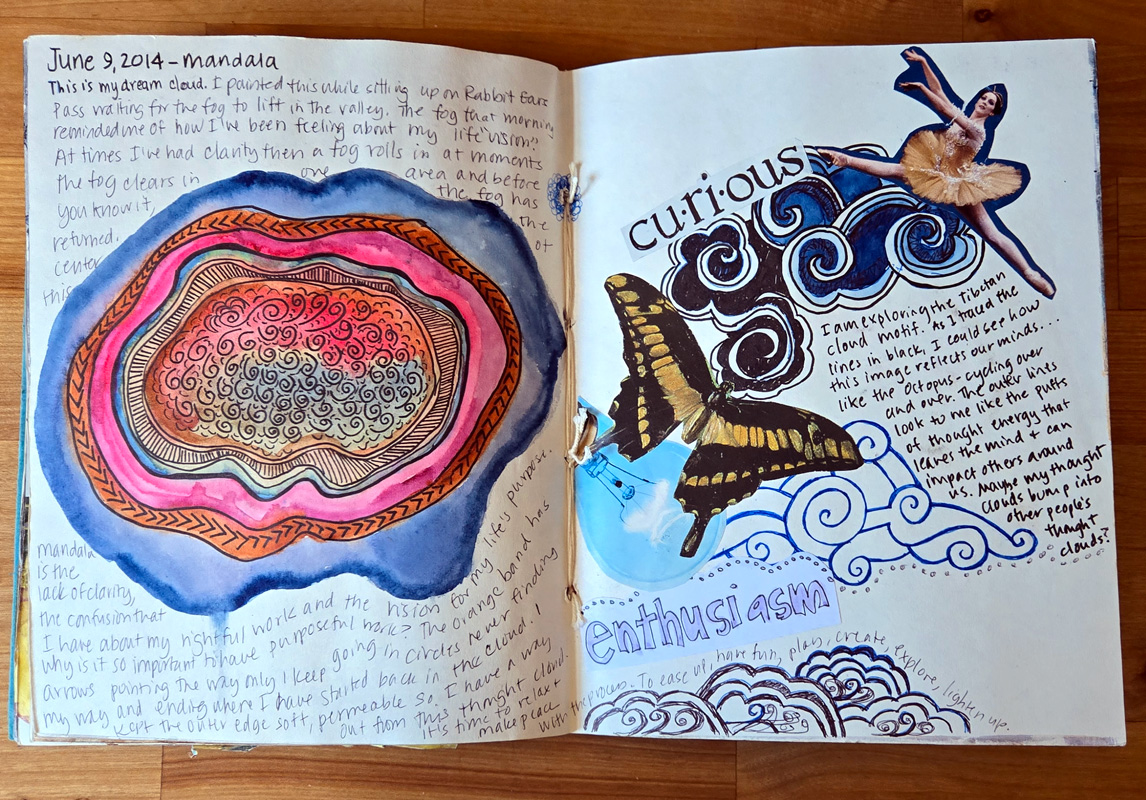 June 9, 2014 - mandala
This is my dream cloud. I painted this while sitting up on Rabbit Ears
Pass waiting for the fog to lift in the valley. The fog that morning
reminded me of how I've been feeling about my life "vision".
At times I've had clarity then a fog rolls in at moments
the fog clears in one area and before
you know it, the fog has
returned. the
center of
this
mandala
is the
lack of clarity,
the confusion that
I have about my rightful work and the vision for my life's purpose.
why is it so important to have purposeful work? The orange band has
arrows pointing the way only I keep going in circles never finding
my way and ending where I have started back in the cloud. I
kept the outer edge soft, permeable so I have a way
out from this thought cloud.
it's time to relax +
make peace
with the process. To ease up, have fun, play, create, explore, lighten up.
cu·ri·ous
I am exploring the Tibetan
cloud motif. As I traced the
lines in black, I could see how
this image reflects our minds...
like the Octopus - cycling over
and over. The outer lines
look to me like the puffs
of thought energy that
leaves the mind + can
impact others around
us. Maybe my thought
clouds bump into
other people's
thought
clouds?
enthusiasm